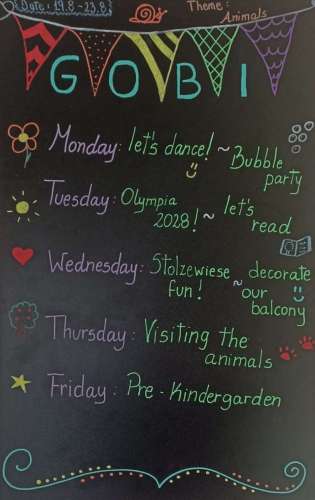 Date: 19.8-23.8
Theme:
Animals
GOBI
Monday: let's dance! ~ Bubble
party
Tuesday: Olympia
2028! ~ let's
read
Wednesday: Stolzewiese
fun! ~ decorate
our
balcony
Thursday: Visiting the
animals
Friday: Pre-Kindergarden